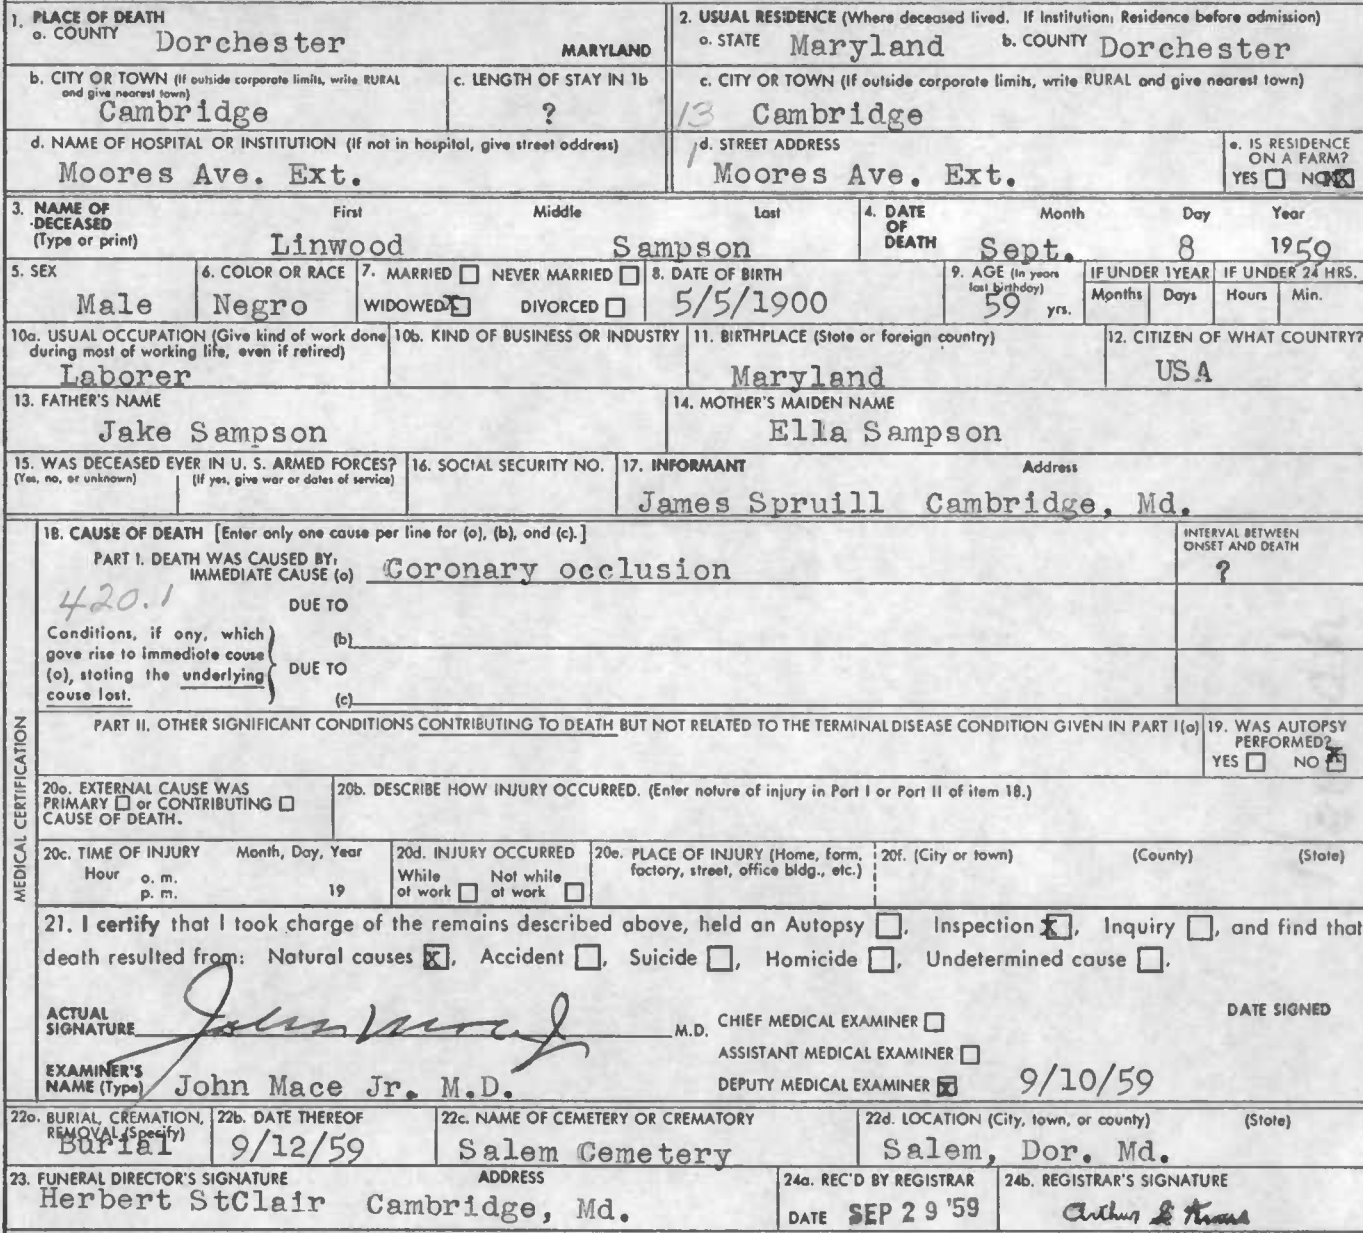 1. PLACE OF DEATH
a. COUNTY Dorchester MARYLAND
2. USUAL RESIDENCE (Where deceased lived. If Institution: Residence before admission)
a. STATE Maryland b. COUNTY Dorchester
b. CITY OR TOWN (If outside corporate limits, write RURAL and give nearest town)
Cambridge
c. LENGTH OF STAY IN 1b
?
c. CITY OR TOWN (If outside corporate limits, write RURAL and give nearest town)
13 Cambridge
d. NAME OF HOSPITAL OR INSTITUTION (If not in hospital, give street address)
Moores Ave. Ext.
1 d. STREET ADDRESS
Moores Ave. Ext.
e. IS RESIDENCE ON A FARM?
YES NO X
3. NAME OF DECEASED (Type or print)
First Middle Last
Linwood Sampson
4. DATE OF DEATH
Month Day Year
Sept. 8 1959
5. SEX
Male
6. COLOR OR RACE
Negro
7. MARRIED NEVER MARRIED
WIDOWED X DIVORCED
8. DATE OF BIRTH
5/5/1900
9. AGE (In years last birthday)
59 yrs.
IF UNDER 1 YEAR
Months Days
IF UNDER 24 HRS.
Hours Min.
10a. USUAL OCCUPATION (Give kind of work done during most of working life, even if retired)
Laborer
10b. KIND OF BUSINESS OR INDUSTRY
11. BIRTHPLACE (State or foreign country)
Maryland
12. CITIZEN OF WHAT COUNTRY?
USA
13. FATHER'S NAME
Jake Sampson
14. MOTHER'S MAIDEN NAME
Ella Sampson
15. WAS DECEASED EVER IN U. S. ARMED FORCES?
(Yes, no, or unknown) (If yes, give war or dates of service)
16. SOCIAL SECURITY NO.
17. INFORMANT Address
James Spruill Cambridge, Md.
MEDICAL CERTIFICATION
18. CAUSE OF DEATH [Enter only one cause per line for (a), (b), and (c).]
PART I. DEATH WAS CAUSED BY:
IMMEDIATE CAUSE (a) Coronary occlusion
INTERVAL BETWEEN ONSET AND DEATH
?
420.1
DUE TO
(b)
Conditions, if any, which gave rise to immediate cause (a), stating the underlying cause last.
DUE TO
(c)
PART II. OTHER SIGNIFICANT CONDITIONS CONTRIBUTING TO DEATH BUT NOT RELATED TO THE TERMINAL DISEASE CONDITION GIVEN IN PART I(a)
19. WAS AUTOPSY PERFORMED?
YES NO X
20a. EXTERNAL CAUSE WAS PRIMARY or CONTRIBUTING CAUSE OF DEATH.
20b. DESCRIBE HOW INJURY OCCURRED. (Enter nature of injury in Part I or Part II of item 18.)
20c. TIME OF INJURY Month, Day, Year
Hour a. m.
p. m. 19
20d. INJURY OCCURRED
While at work Not while at work
20e. PLACE OF INJURY (Home, form, factory, street, office bldg., etc.)
20f. (City or town) (County) (State)
21. I certify that I took charge of the remains described above, held an Autopsy , Inspection X, Inquiry , and find that
death resulted from: Natural causes X, Accident , Suicide , Homicide , Undetermined cause .
ACTUAL SIGNATURE John Mace Jr M.D.
CHIEF MEDICAL EXAMINER
ASSISTANT MEDICAL EXAMINER
DEPUTY MEDICAL EXAMINER X
DATE SIGNED
9/10/59
EXAMINER'S NAME (Type) John Mace Jr. M.D.
22a. BURIAL, CREMATION, REMOVAL (Specify)
Burial
22b. DATE THEREOF
9/12/59
22c. NAME OF CEMETERY OR CREMATORY
Salem Cemetery
22d. LOCATION (City, town, or county) (State)
Salem, Dor. Md.
23. FUNERAL DIRECTOR'S SIGNATURE ADDRESS
Herbert StClair Cambridge, Md.
24a. REC'D BY REGISTRAR
DATE SEP 29 '59
24b. REGISTRAR'S SIGNATURE
Arthur